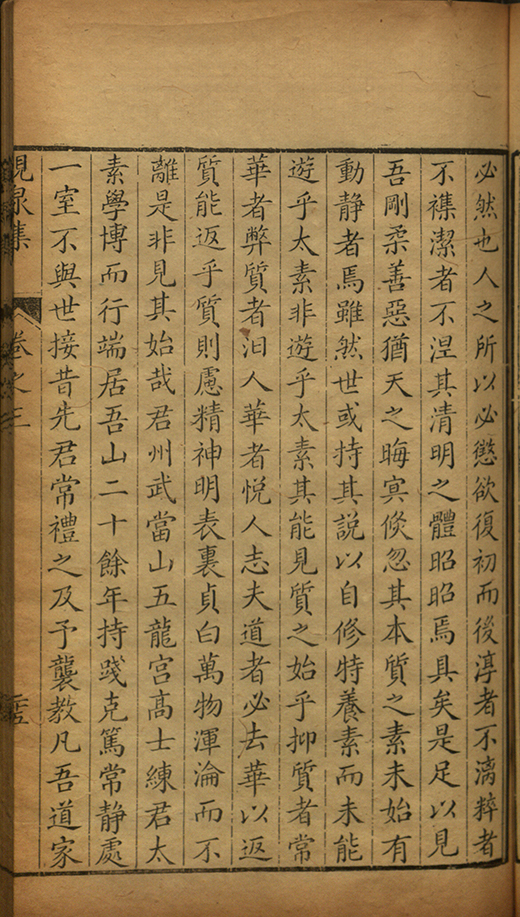 必然也人之所以必懲欲復初而後淳者不漓粹者
不襍潔者不涅其清明之體昭昭焉具矣是足以見
吾剛柔善惡猶天之晦㝠倐忽其本質之素未始有
動静者焉雖然世或持其說以自修特養素而未能
遊乎太素非遊乎太素其能見質之始乎抑質者常
華者弊質者汩人華者悅人志夫道者必去華以返
質能返乎質則慮精神明表裏貞白萬物渾淪而不
離是非見其始哉君州武當山五龍宮髙士練君太
素學博而行端居吾山二十餘年持踐克篤常静處
一室不與世接昔先君常禮之及予襲教凡吾道家
峴泉集 卷之三